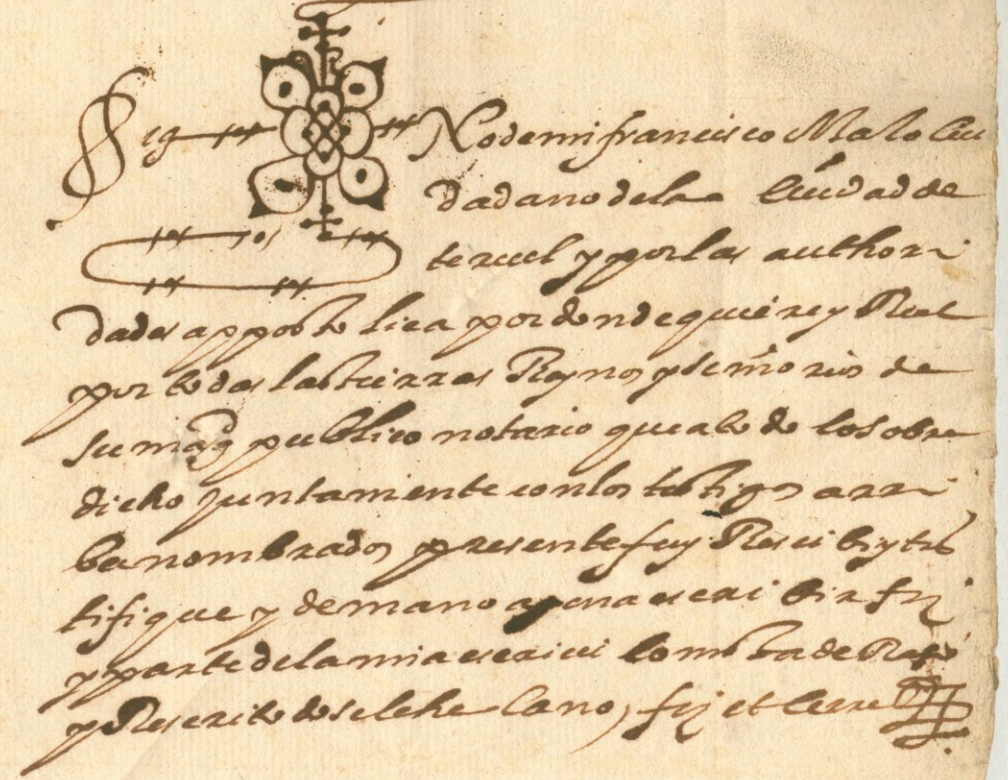 Sig No de mi francisco Malo Ciu
dadano dela Ciudad de
teruel y por las authori
dades appostolica por donde quiere y Real
por todas las tierras Reynos y senorios de
su mag publico notario que a todo lo sobre
dicho juntamente con los testigos arri
ba nombrados presente fuy Rescibi y tes
tifique y de mano agena escribir fiz
y parte dela mia escrivi de
y Rescrito do se lehe fiz et cerre